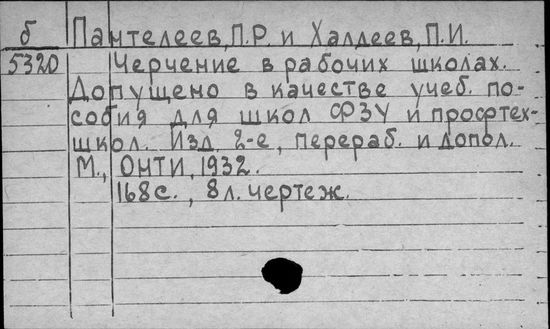 б Пантелеев, П.Р. и Халдеев, П.И.
5320 Черчение в рабочих школах.
Допущено в качестве учеб. по-
собия для школ ФЗУ и профтех-
школ. Изд. 2-е, перераб. и допол.
М., ОНТИ, 1932.
168с., 8 л. чертеж.